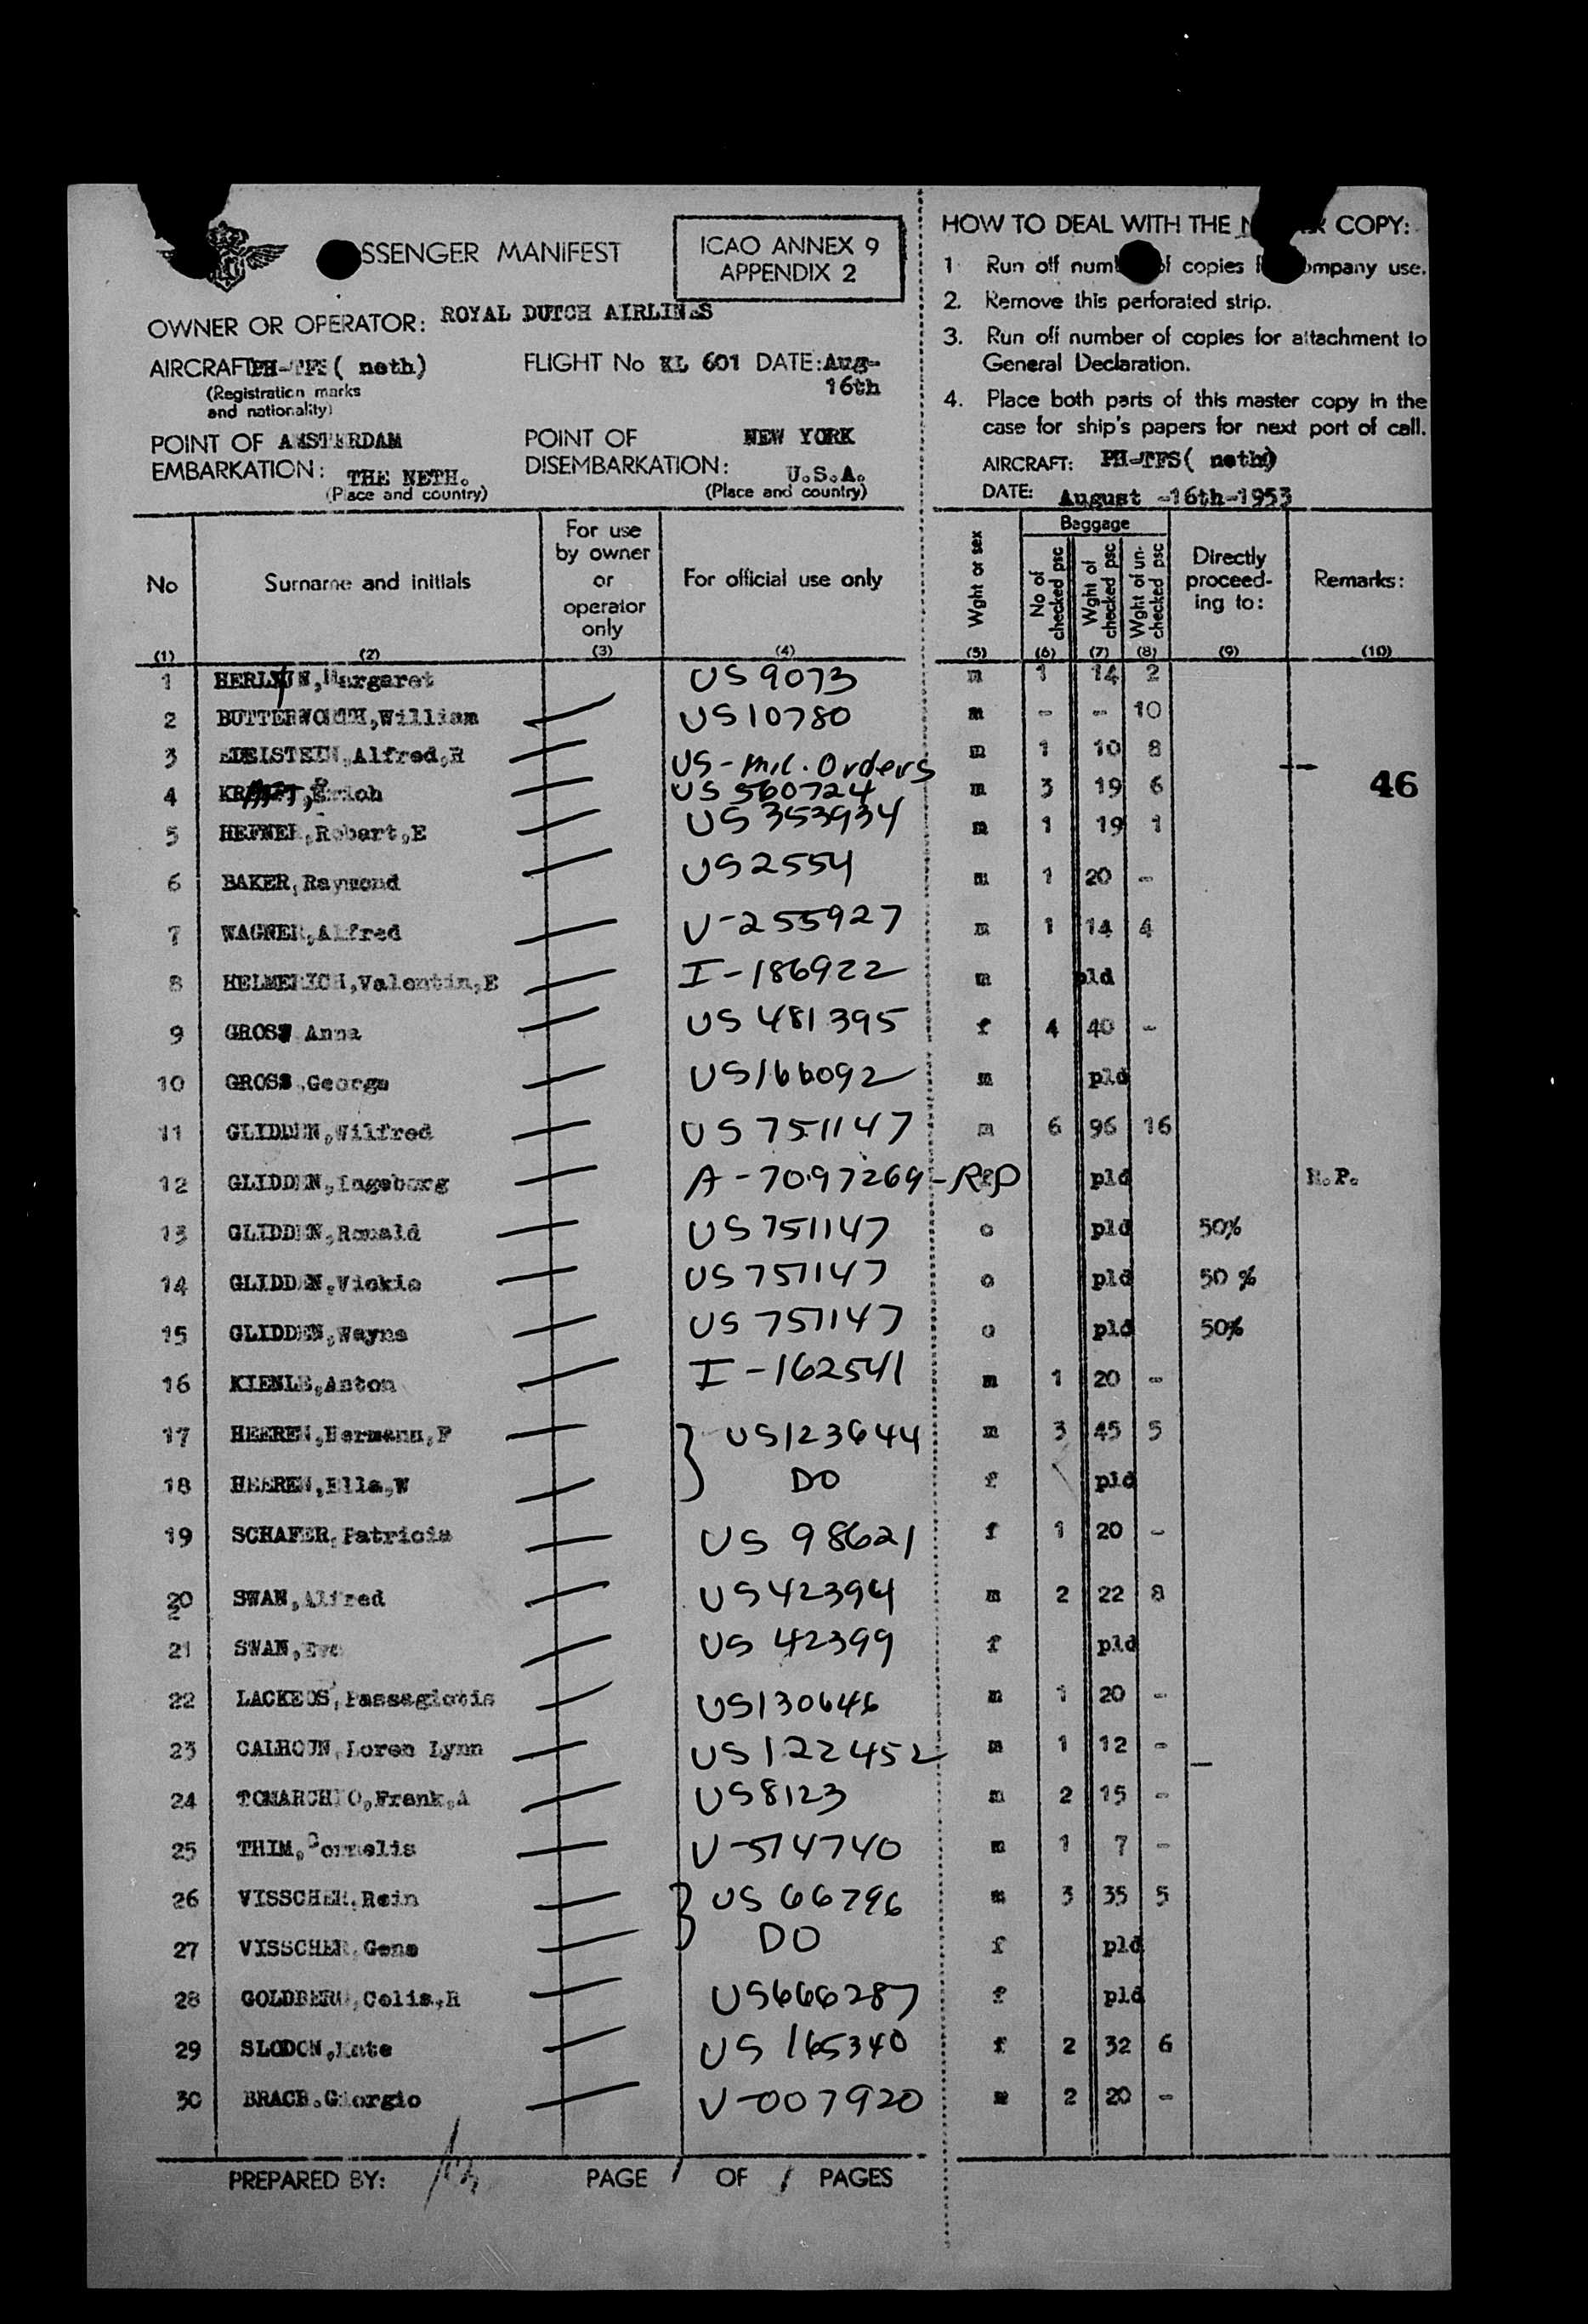 SSENGER MANIFEST
ICAO ANNEX 9
APPENDIX 2
OWNER OR OPERATOR: ROYAL DUTCH AIRLINES
AIRCRAFT PH-TFS ( neth)
(Registration marks
and nationality)
FLIGHT No KL 601 DATE: Aug-
16th
POINT OF AMSTERDAM
EMBARKATION: THE NETH.
(Place and country)
POINT OF NEW YORK
DISEMBARKATION: U.S.A.
(Place and country)
HOW TO DEAL WITH THE COPY:
1 Run off of copies company use.
2. Remove this perforated strip.
3. Run off number of copies for attachment to
General Declaration.
4. Place both parts of this master copy in the
case for ship's papers for next port of call.
AIRCRAFT: PH-TFS( neth)
DATE: August -16th-1953
No Surname and initials For use by owner or operator only For official use only Wght or sex Baggage No of checked psc Wght of checked psc Wght of un-checked psc Directly proceed-ing to: Remarks:
(1) (2) (3) (4) (5) (6) (7) (8) (9) (10)
1 Margaret US 9073 m 1 14 2
2 BUTTERWORTH,William US10780 m - - 10
3 EDELSTEIN,Alfred,R US-Mil. Orders m 1 10 8
4 Erich US 560724 m 3 19 6 46
5 HEFNER,Robart,E US 353934 m 1 19 1
6 BAKER,Raymond US2554 m 1 20 -
7 WAGNER,Alfred V-255927 m 1 14 4
8 HELMERICH,Valentin,E I-186922 m pld
9 GROSS Anna US 481395 f 4 40 -
10 GROSS.George US166092 m pld
11 GLIDDEN,Wilfred US 751147 m 6 96 16
12 GLIDDEN,Ingeborg A-7097269-RP pld R.P.
13 GLIDDEN,Ronald US 751147 c pld 50%
14 GLIDDEN,Vickie US 751147 c pld 50 %
15 GLIDDEN,Wayne US 751147 c pld 50%
16 KIENLE,Anton I-162541 m 1 20 -
17 HEEREN,Hermann,F US123644 m 3 45 5
18 HEEREN,Ella,W DO f pld
19 SCHAFER,Patricia US 98621 f 1 20 -
20 SWAN,Alfred US42394 m 2 22 8
21 SWAN,Eva US 42399 f pld
22 LACKEOS,Passagiotis US130646 m 1 20 -
23 CALHOUN,Loren Lynn US122452 m 1 12 -
24 TOMARCHIO,Frank,A US8123 m 2 15 -
25 THIM,Cornelis V-514740 m 1 7 -
26 VISSCHER,Rein US 66796 m 3 35 5
27 VISSCHER,Gene DO f pld
28 GOLDBERG,Celia,R US666287 f pld
29 SLODON,Kate US 165340 f 2 32 6
30 BRACB.Giorgio V-007920 m 2 20 -
PREPARED BY: PAGE 1 OF 1 PAGES